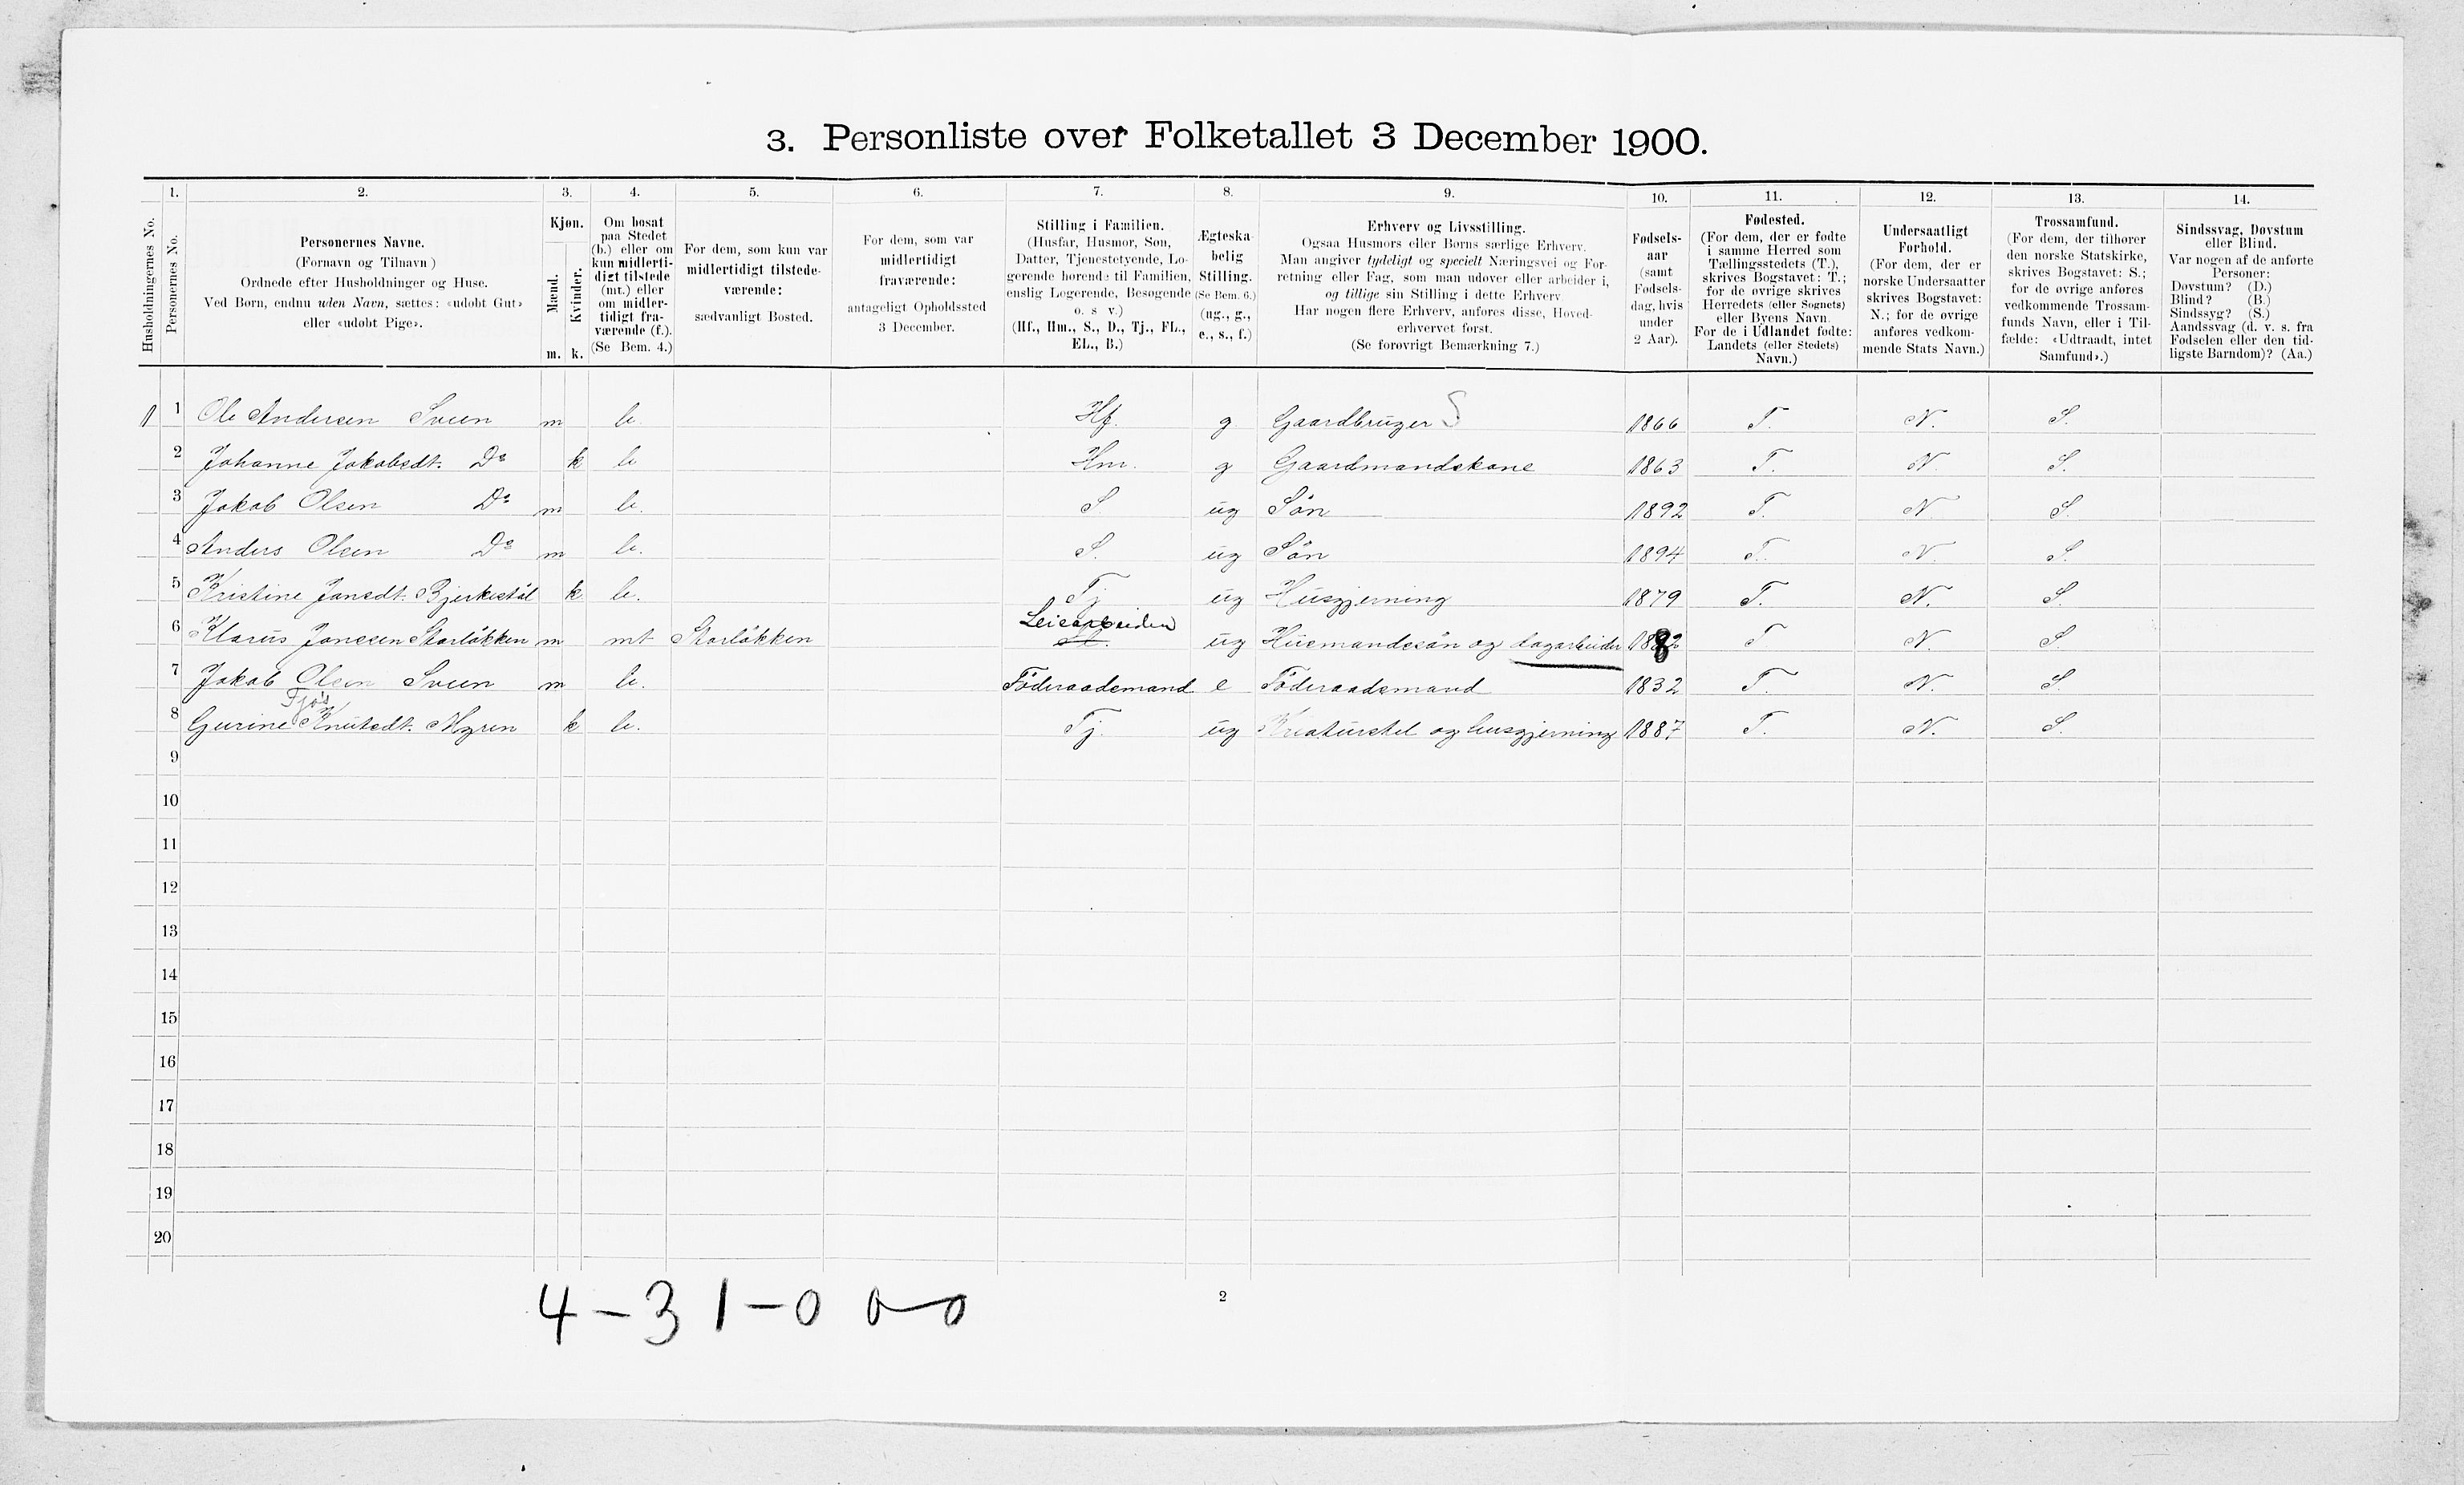 3. Personliste over Folketallet 3 December 1900.
1. 2. 3. 4. 5. 6. 7. 8. 9. 10. 11. 12. 13. 14.
Husholdningernes No.
Personernes No.
Personernes Navne.
(Fornavn og Tilnavn)
Ordnede efter Husholdninger og Huse.
Ved Børn, endnu uden Navn, sættes: «udøbt Gut»
eller «udøbt Pige».
Kjøn.
Mænd.
Kvinder.
m. k.
Om bosat
paa Stedet
(b.) eller om
kun midlerti-
digt tilstede
(mt.) eller
om midler-
tidigt fra-
værende (f.).
(Se Bem. 4.)
For dem, som kun var
midlertidigt tilstede-
værende:
sædvanligt Bosted.
For dem, som var
midlertidigt
fraværende:
antageligt Opholdssted
3 December.
Stilling i Familien.
(Husfar, Husmor, Søn,
Datter, Tjenestetyende, Lo-
gerende hørende til Familien,
enslig Logerende, Besøgende
o. s v.)
(Hf., Hm., S., D., Tj., FL.,
EL., B.)
Ægteska-
belig
Stilling.
(Se Bem. 6.)
(ug., g.,
e., s., f.)
Erhverv og Livsstilling.
Ogsaa Husmors eller Børns særlige Erhverv.
Man angiver tydeligt og specielt Næringsvei og For-
retning eller Fag, som man udøver eller arbeider i,
og tillige sin Stilling i dette Erhverv
Har nogen flere Erhverv, anføres disse, Hoved-
erhvervet først.
(Se forøvrigt Bemærkning 7.)
Fødsels-
aar
(samt
Fødsels-
dag, hvis
under
2 Aar).
Fødested.
(For dem, der er fødte
i samme Herred som
Tællingsstedets (T.),
skrives Bogstavet: T.;
for de øvrige skrives
Herredets (eller Sognets)
eller Byens Navn.
For de i Udlandet fødte:
Landets (eller Stedets)
Navn.)
Undersaatligt
Forhold.
(For dem, der er
norske Undersaatter
skrives Bogstavet:
N.; for de øvrige
anføres vedkom-
mende Stats Navn.)
Trossamfund.
(For dem, der tilhører
den norske Statskirke,
skrives Bogstavet: S.;
for de øvrige anføres
vedkommende Trossam-
funds Navn, eller i Til-
fælde: «Udtraadt, intet
Samfund».)
Sindssvag, Døvstum
eller Blind.
Var nogen af de anførte
Personer:
Døvstum? (D.)
Blind? (B.)
Sindssyg? (S.)
Aandssvag (d. v. s. fra
Fødselen eller den tid-
ligste Barndom)? (Aa.)
1 1 Ole Andersen Sveen m b. Hf. g Gaardbruger S 1866 T. N. S.
2 Johanne Jakobsdt. Do k b Hm. g Gaardmandskone 1863 T. N. S.
3 Jakob Olsen Do m b. S ug Sön 1892 T. N S.
4 Anders Olsen Do m b. S. ug Sön 1894 T. N. S
5 Kristine Jansdt. Bjerkestöl k b. Tj ug Husgjerning 1879 T. N. S.
Leiearbeider
6 Klarus Jonssen Storlökken m mt Storlökken ug Husmandssön og dagarbeider 1882 T N. S.
7 Jakob Olsen Sveen m b. Föderaademand e Föderaademand 1832 T. N. S.
Tjös
8 Gurine Knutsdt. Myren k b. Tj. ug Kreaturstel og husgjerning 1887 T. N. S.
9
10
11
12
13
14
15
16
17
18
19
20
4 - 3 1 - 0 0 - 0
2